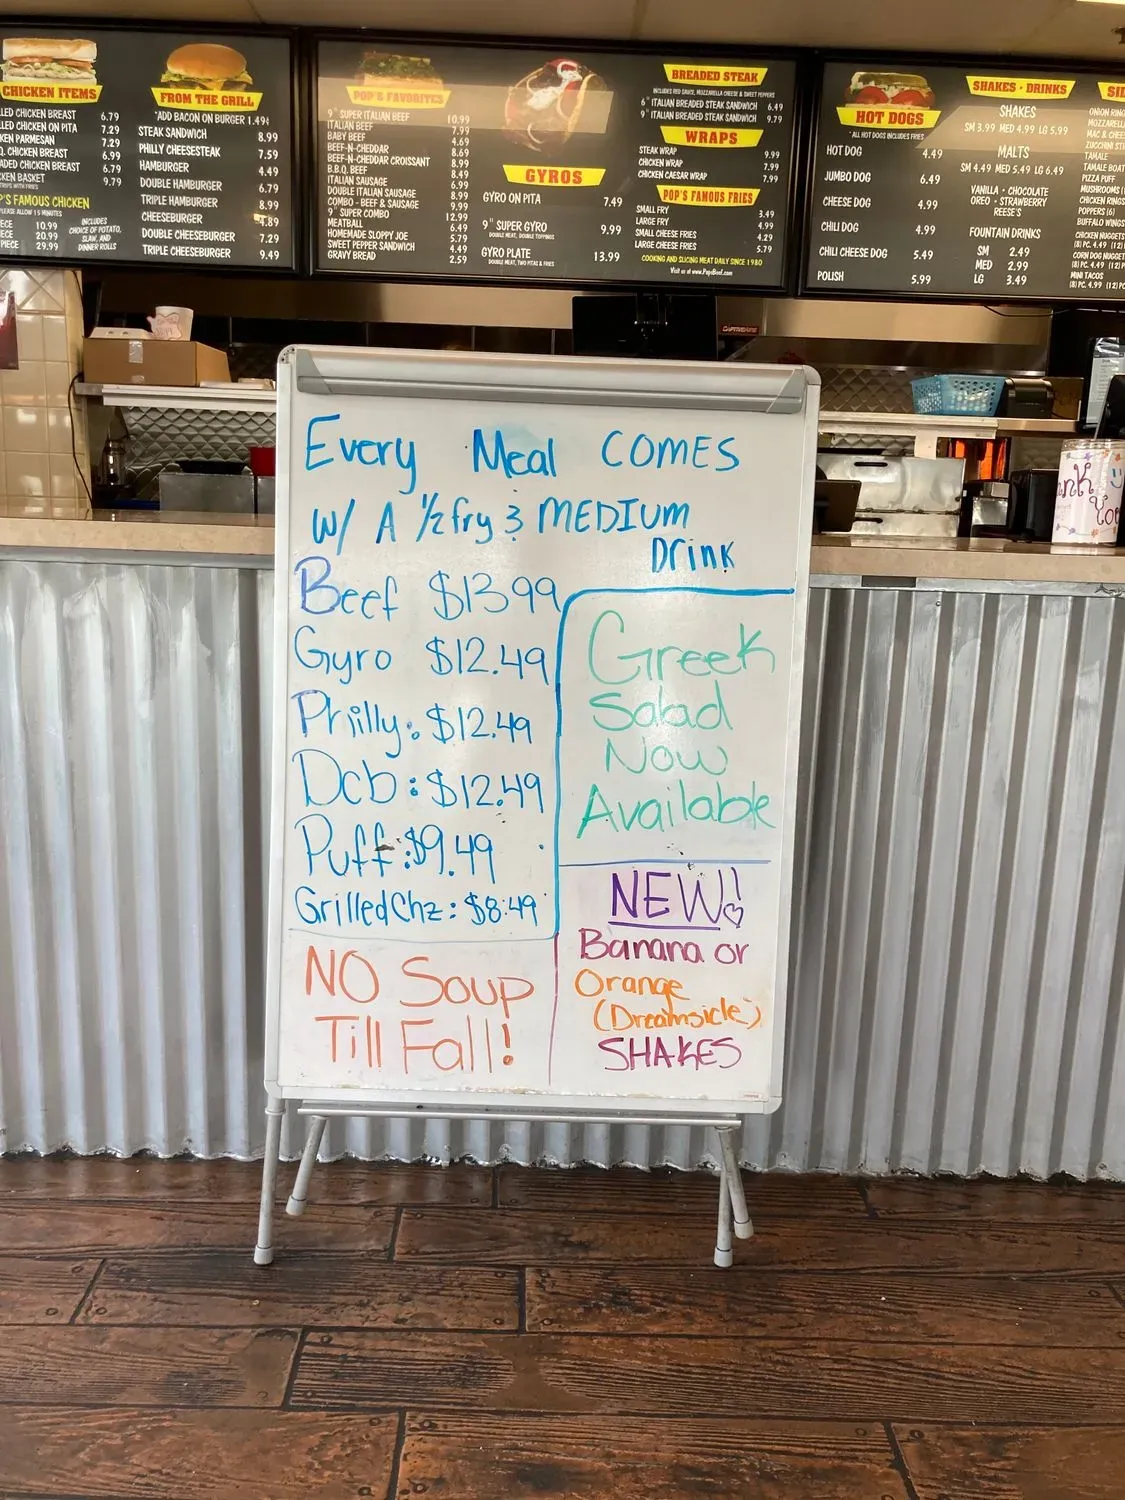 CHICKEN ITEMS
LED CHICKEN BREAST 6.79
LED CHICKEN ON PITA 7.29
KEN PARMESAN 7.29
Q. CHICKEN BREAST 6.99
ADED CHICKEN BREAST 6.79
KEN BASKET 9.79
P'S FAMOUS CHICKEN
PLEASE ALLOW 15 MINUTES
INCLUDES
CHOICE OF POTATO,
SLAW, AND
DINNER ROLLS
ECE 10.99
IECE 20.99
PIECE 29.99
FROM THE GRILL
*ADD BACON ON BURGER 1.49¢
STEAK SANDWICH 8.99
PHILLY CHEESESTEAK 7.59
HAMBURGER 4.49
DOUBLE HAMBURGER 6.79
TRIPLE HAMBURGER 8.99
CHEESEBURGER 4.89
DOUBLE CHEESEBURGER 7.29
TRIPLE CHEESEBURGER 9.49
POP'S FAVORITES
9" SUPER ITALIAN BEEF 10.99
ITALIAN BEEF 7.99
BABY BEEF 4.69
BEEF-N-CHEDDAR 8.69
BEEF-N-CHEDDAR CROISSANT 8.99
B.B.Q. BEEF 8.49
ITALIAN SAUSAGE 6.99
DOUBLE ITALIAN SAUSAGE 8.99
COMBO - BEEF & SAUSAGE 9.99
9" SUPER COMBO 12.99
MEATBALL 6.49
HOMEMADE SLOPPY JOE 5.79
SWEET PEPPER SANDWICH 4.49
GRAVY BREAD 2.59
GYROS
GYRO ON PITA 7.49
9" SUPER GYRO 9.99
DOUBLE MEAT, DOUBLE TOPPINGS
GYRO PLATE 13.99
DOUBLE MEAT, TWO PITAS & FRIES
BREADED STEAK
INCLUDES RED SAUCE, MOZZARELLA CHEESE & SWEET PEPPERS
6" ITALIAN BREADED STEAK SANDWICH 6.49
9" ITALIAN BREADED STEAK SANDWICH 9.79
WRAPS
STEAK WRAP 9.99
CHICKEN WRAP 7.99
CHICKEN CAESAR WRAP 7.99
POP'S FAMOUS FRIES
SMALL FRY 3.49
LARGE FRY 4.99
SMALL CHEESE FRIES 4.29
LARGE CHEESE FRIES 5.79
COOKING AND SLICING MEAT DAILY SINCE 1980
Visit us at www.PopsBeef.com
HOT DOGS
*ALL HOT DOGS INCLUDES FRIES
HOT DOG 4.49
JUMBO DOG 6.49
CHEESE DOG 4.99
CHILI DOG 4.99
CHILI CHEESE DOG 5.49
POLISH 5.99
SHAKES · DRINKS
SHAKES
SM 3.99 MED 4.99 LG 5.99
MALTS
SM 4.49 MED 5.49 LG 6.49
VANILLA · CHOCOLATE
OREO · STRAWBERRY
REESE'S
FOUNTAIN DRINKS
SM 2.49
MED 2.99
LG 3.49
SID
ONION RING
MOZZAREL
MAC & CHEE
ZUCCHINI STI
TAMALE
TAMALE BOAT
PIZZA PUFF
MUSHROOMS (
CHICKEN RINGS
POPPERS (6)
BUFFALO WINGS
CHICKEN NUGGETS
(8) PC. 4.49 (12) P
CORN DOG NUGGET
(8) PC. 4.49 (12) P
MINI TACOS
(8) PC. 4.99 (12) PC
CAPTIVEAIRE
Every Meal COMES
W/ A 1/2 fry & MEDIUM
Drink
Beef $13.99
Gyro $12.49
Philly: $12.49
Dcb: $12.49
Puff: $9.49
Grilled Chz: $8.49
NO Soup
Till Fall!
Greek
Salad
Now
Available
NEW!
Banana or
Orange
(Dreamsicle)
SHAKES
ank
You